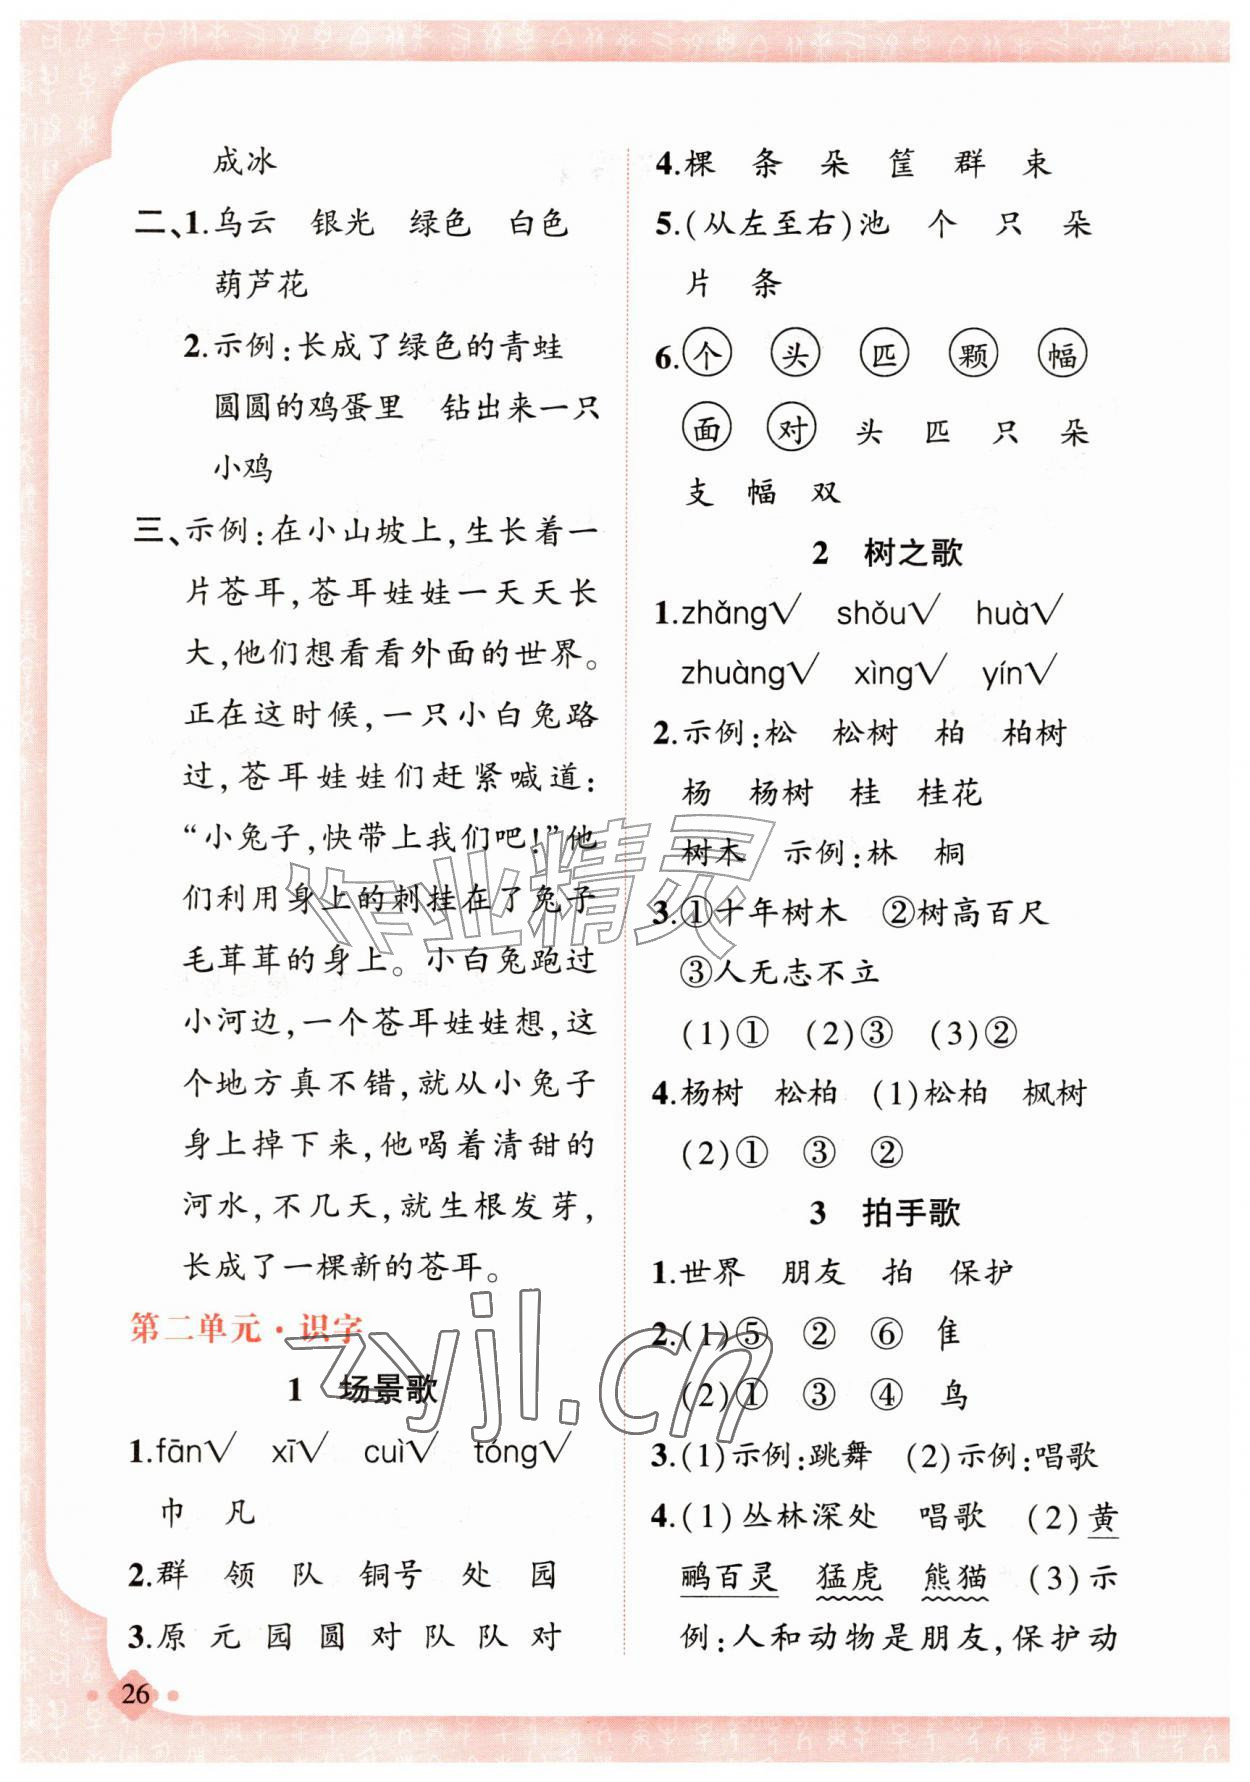 成冰
二、1.乌云 银光 绿色 白色
葫芦花
2.示例:长成了绿色的青蛙
圆圆的鸡蛋里 钻出来一只
小鸡
三、示例:在小山坡上,生长着一
片苍耳,苍耳娃娃一天天长
大,他们想看看外面的世界。
正在这时候,一只小白兔路
过,苍耳娃娃们赶紧喊道:
“小兔子,快带上我们吧!”他
们利用身上的刺挂在了兔子
毛茸茸的身上。小白兔跑过
小河边,一个苍耳娃娃想,这
个地方真不错,就从小兔子
身上掉下来,他喝着清甜的
河水,不几天,就生根发芽,
长成了一棵新的苍耳。
第二单元·识字
1 场景歌
1.fān√ xī√ cuì√ tóng√
巾 凡
2.群 领 队 铜号 处 园
3.原 元 园 圆 对 队 队 对
26
4.棵 条 朵 筐 群 束
5.(从左至右)池 个 只 朵
片 条
6.个 头 匹 颗 幅
面 对 头 匹 只 朵
支 幅 双
2 树之歌
1.zhǎng√ shǒu√ huà√
zhuàng√ xìng√ yín√
2.示例:松 松树 柏 柏树
杨 杨树 桂 桂花
树木 示例:林 桐
3.①十年树木 ②树高百尺
③人无志不立
(1)① (2)③ (3)②
4.杨树 松柏 (1)松柏 枫树
(2)① ③ ②
3 拍手歌
1.世界 朋友 拍 保护
2.(1)⑤ ② ⑥ 隹
(2)① ③ ④ 鸟
3.(1)示例:跳舞 (2)示例:唱歌
4.(1)丛林深处 唱歌 (2)黄
鹂百灵 猛虎 熊猫 (3)示
例:人和动物是朋友,保护动
作业精灵
zyjl.cn